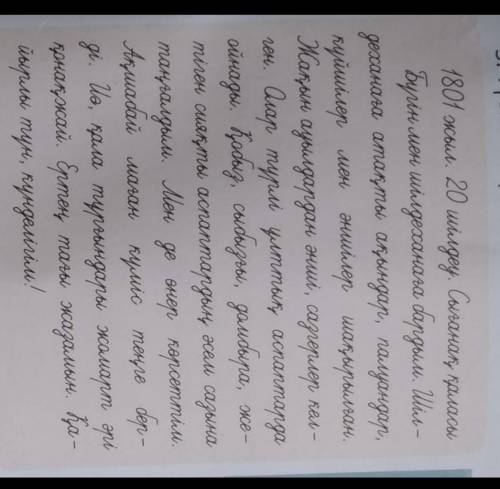 1801 жыл. 20 шілде. Сығанақ қаласы
Бүгін мен шілдеханаға бардым. Шіл-
деханаға атақты ақындар, палуандар,
күйшілер мен әншілер шақырылған.
Жақын ауылдардан әнші, сазгерлер кел-
ген. Олар түрлі ұлттық аспаптарда
ойнады. Қобыз, сыбызғы, домбыра, же-
тіген сияқты аспаптардың әсем сазына
таңғалдым. Мен де өнер көрсеттім.
Ақшабай маған күміс теңге бер-
ді. Иә, қала тұрғындары жомарт әрі
қонақжай. Ертең тағы жазамын. Қа-
йырлы түн, күнделігім!